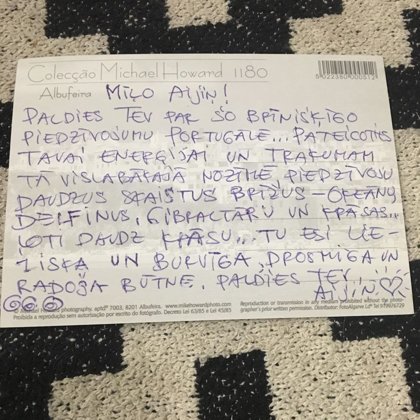 Colecção Michael Howard 1180
5 022380 000812
Albufeira
MĪĻO AIJIŅ!
PALDIES TEV PAR ŠO BRĪNIŠĶĪGO
PIEDZĪVOJUMU PORTUGĀLĒ... PATEICOTIES
TAVAI ENERĢIJAI UN TRAKUMAM
TĀ VISLABĀKAJĀ NOZĪMĒ PIEDZĪVOJU
DAUDZUS SKAISTUS BRĪŽUS – OKEĀNU,
DELFĪNUS, GIBRALTĀRU UN KRĀSAS...
ĻOTI DAUDZ KRĀSU... TU ESI LIE
LISKA UN BURVĪGA, DROSMĪGA UN
RADOŠA BŪTNE. PALDIES TEV,
AIJIŅ
photography, 7003, 8201 Albufeira. www.mikehowardphoto.com
Reproduction or transmission in any medium prohibited without the photo-
Proibida a reprodução sem autorização por escrito do fotógrafo. Decreto Lei 63/85 e Lei 45/85
grapher's prior written permission. Distributor: FotoAlgarve Ldª Tel